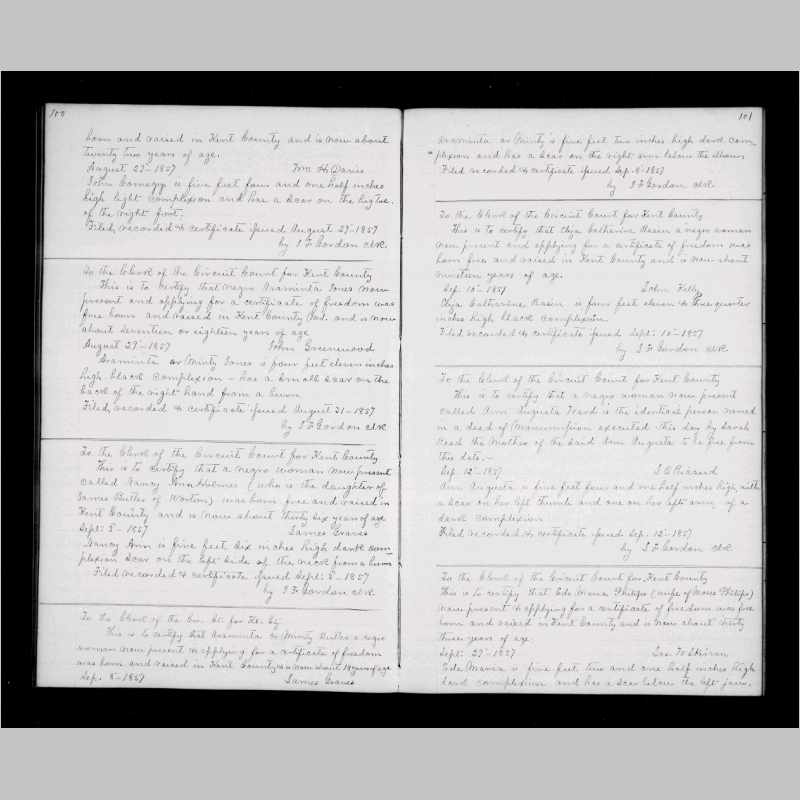 100
born and raised in Kent County and is now about
twenty two years of age.
August 27-1857 Wm H. Davis
John is five feet four and one half inches
high light complexion and has a scar on the
of the right foot.
Filed, recorded & certificate issued August 27-1857
by J F Gordon clk
To the Clerk of the Circuit Court for Kent County
This is to certify that negro Araminta Jones now
present and applying for a certificate of freedom was
free born and raised in Kent County Md. and is now
about seventeen or eighteen years of age
August 27-1857 John Greenwood
Araminta or Minty Jones is four feet eleven inches
high black complexion - has a small scar on the
back of the right hand from a burn
Filed, recorded & certificate issued August 31-1857
by J F Gordon clk
To the Clerk of the Circuit Court for Kent County
This is to certify that a negro woman now present
called Nancy Ann Holmes (who is the daughter of
James Butler of Worton) was born free and raised in
Kent County and is now about thirty six years of age
Sept: 8-1857 James Graves
Nancy Ann is five feet six inches high dark com-
plexion scar on the left side of the neck from a burn
Filed recorded & certificate issued Sept: 8-1857
by J F Gordon clk
To the Clerk of the Cir. Ct. for Ke. Cy
This is to certify that Araminta or Minty Butler a negro
woman now present & applying for a certificate of freedom
was born and raised in Kent County & is now about 18 years of age
Sep. 8-1857 James Graves
101
Araminta or Minty is five feet two inches high dark com-
plexion and has a scar on the right arm below the elbow
Filed recorded & certificate issued Sep. 8-1857
by J F Gordon clk
To the Clerk of the Circuit Court for Kent County
This is to certify that Eliza Catharine Rasin a negro woman
now present and applying for a certificate of freedom was
born free and raised in Kent County and is now about
nineteen years of age.
Sep. 10-1857 John Kelly
Eliza Catharine Rasin is four feet eleven & three quarter
inches high black complexion.
Filed recorded & certificate issued Sept: 10-1857
by J F Gordon clk
To the Clerk of the Circuit Court for Kent County
This is to certify that a negro woman now present
called Ann Augusta is the identical person named
in a deed of Manumission executed this day by Sarah
the mother of the said Ann Augusta to be free from
this date.-
Sep. 12-1857 Ricaud
Ann Augusta is five feet four and one half inches high, with
a scar on her left thumb and one on her left arm, of a
dark complexion
Filed recorded & certificate issued Sep. 12-1857
by J F Gordon clk
To the Clerk of the Circuit Court for Kent County
This is to certify that Eda Maria Philips (wife of Moses Philips)
now present & applying for a certificate of freedom was free
born and raised in Kent County and is now about thirty
three years of age
Sept: 27-1857 Jas. W Skirven
Eda Maria is five feet two and one half inches high
dark complexion and has a scar below the left jaw.